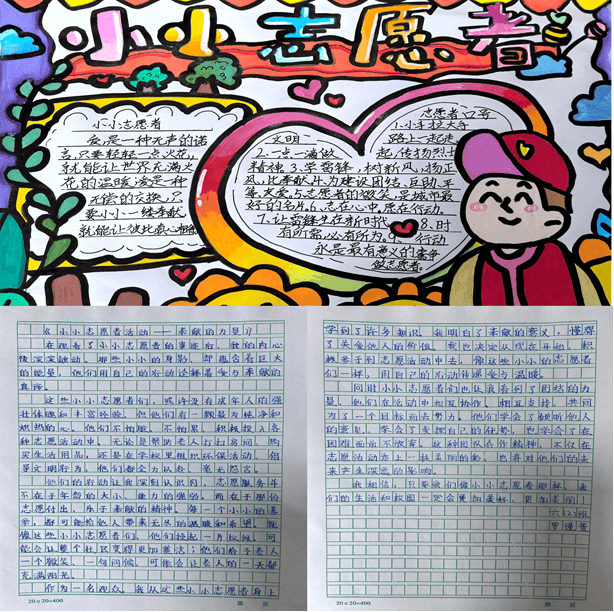 小小志愿者
小小志愿者
爱是一种无声的诺
言,只要轻轻一点火花,
就能让世界充满火
花的温暖爱是一种
无偿的交换,只
要小小一缕奉献
就能让彼此
志愿者口号
1.小手拉大手
文明
路上一起走
2.一点一滴做
起,传扬烈士
精神 3.学雷锋,树新风,扬正
气,比奉献 4.为建设团结、互助、平
5.志愿者的微笑,是城市最
好的名片 6.志在心中,愿在行动。
7.让雷锋
8.时
有所需,必有所为。9.行动
永是最有意义的
做志愿者。
《小小志愿者活动——奉献的力量》
在观看了小小志愿者的事迹后,我的内心
被深深触动。那些小小的身影,却蕴含着巨大
的能量,他们用自己的行动诠释着爱与奉献的
真谛。
这些小小志愿者们,或许没有成年人的强
壮体魄和丰富经验,但他们有一颗最为纯净和
炽热的心。他们不怕脏、不怕累,积极投入各
种志愿活动中。无论是帮助老人打扫房间、购
买生活用品,还是在学校里组织环保活动、倡
导文明行为,他们都全力以赴,毫无怨言。
他们的行动让我深刻认识到,志愿服务并
不在于年龄的大小、能力的强弱,而在于那份
愿意付出、乐于奉献的精神。每一个小小的善
举,都可能给他人带来无尽的温暖和希望。就
像这些小小志愿者们,他们捡起一片垃圾,可
能会让整个社区变得更加整洁;他们给予老人
一个微笑、一句问候,可能会让老人的一天都
充满阳光。
作为一名观众,我从这些小小志愿者身上
20×20=400
第 页
学到了许多知识。我明白了奉献的意义,懂得
了关爱他人的价值。我也决定从现在开始,积
极参与到志愿活动中去,像这些小小的志愿者
们一样,用自己的行动传递爱与温暖。
同时小小志愿者们也让我看到了团结的力
量。他们在活动中相互协作、相互支持,共同
为了一个目标而去努力。他们学会了倾听他人
的意见,学会了发挥自己的优势,也学会了在
困难面前不放弃。这种团队合作精神,不仅在
志愿活动
美丽的
,也将对他们的未
来产生深远的影响。
我相信,只要我们像小小志愿者那样,我
们的生活和校园一定会更加美好,更加美丽!
六(2)班
20×20=400
第 页